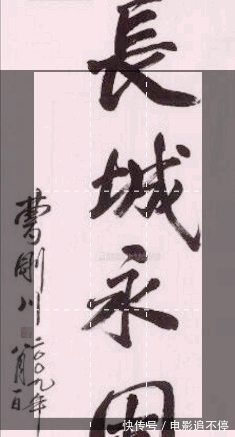 長城永固
曹剛川
二〇〇九年
八月一日
快传号/电影追不停